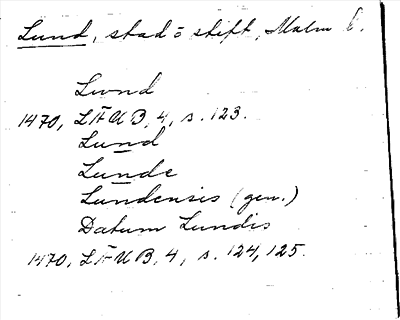 Lund, stad o stift, Malm l.
Lwnd
1470, LÄUB, 4, s. 123.
Lund
Lunde
Lundensis (gen.)
Datum Lundis
1470, LÄUB, 4, s. 124, 125.